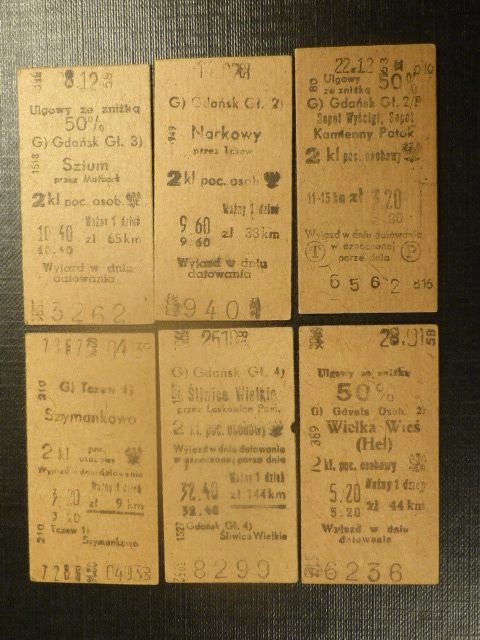 8.12
Ulgowy ze zniżką
50%
G) Gdańsk Gł. 3)
1518
Sztum
przez Malbork
2 kl poc. osob.
Ważny 1 dzień
10.40 zł 65 km
10.40
Wyjazd w dniu
datowania
3262
G) Gdańsk Gł. 2)
949
Narkowy
przez Tczew
2 kl poc. osob
Ważny 1 dzień
9.60 zł 33 km
9.60
Wyjazd w dniu
datowania
940
22.12
Ulgowy
ze zniżką 50%
80
G) Gdańsk Gł. 2/P
Sopot Wyścigi, Sopot
Kamienny Potok
2 kl poc. osobowy
11-15 km zł 3.20
3.20
Wyjazd w dniu datowania
w oznaczonej
porze dnia
T P
6562 616
210
G) Tczew 4)
Szymankowo
2 kl poc. osobowe
Wyjazd w dniu datowania
Ważny 1 dzień
3.20 zł 9 km
3.20
210
Tczew
Szymankowo
04933
G) Gdańsk Gł. 4)
1527
Śliwice Wielkie
przez Laskowice Pom.
2 kl. poc. osobowy
Wyjazd w dniu datowania
w oznaczonej porze dnia
Ważny 1 dzień
32.40 zł 144 km
32.40
1527
Gdańsk Gł. 4)
Śliwice Wielkie
8290
28.01 58
Ulgowy ze zniżką
50%
G) Gdynia Osob. 2)
389
Wielka Wieś
(Hel)
2 kl. poc. osobowy
Ważny 1 dzień
5.20 zł 44 km
5.20
Wyjazd w dniu
datowania
6236